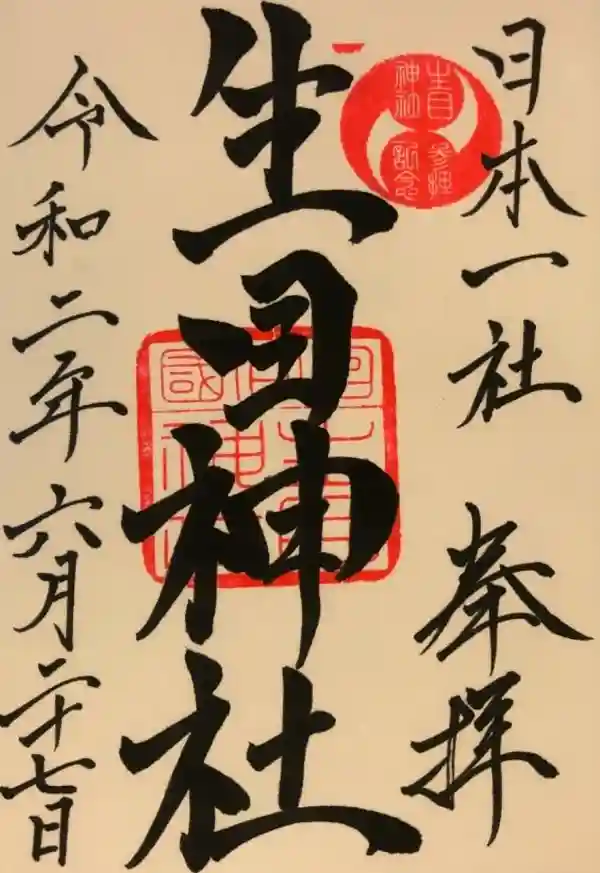 日本一社 奉拝
生目神社
令和二年六月二十七日
生目
神社
参拝
記念
國